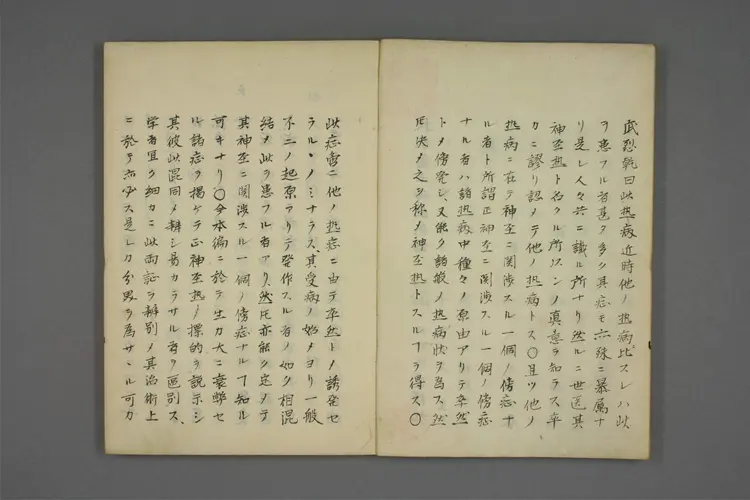 武烈乾曰此热病近時他ノ热病比スレハ此
ヲ患フル者甚タ多シ其症モ亦殊ニ暴厲ナ
リ是レ人々共ニ識ル所ナリ然ルニ世医其
神至热ト名クル所以ンノ真意ヲ知ラス卒
カニ謬リ認メテ他ノ热病トス〇且ツ他ノ
热病ニ在テ神至ニ関渉スル一個ノ傍症ナ
ル者ト所謂正神至ニ関渉スル一個ノ傍症
ナル者ハ諸热病中種々ノ原由アリテ卒然
トメ傍発シ又能ク諸般ノ热病状ヲ為ス然
𪜈决メ之ヲ称メ神至热トスルヿヲ得ス〇
此症啻ニ他ノ热症ニ由テ卒然トメ誘発セ
ラルヽノミナラス其受病ノ始メヨリ一般
不二ノ起原アリテ発作スル者ノ如ク相混
結メ此ヲ患フル者アリ然𪜈亦能ク定メテ
其神至ニ関渉スル一個ノ傍症ナルヿ知ル
可キナリ〇今本編ニ於テ生力大ニ衰弊セ
ル諸症ヲ掲ケテ正神至热ノ標的ヲ説示シ
其彼此混同メ辨シ易カラサル者ヲ区別ス
学者宜ク細カニ此両証ヲ辨別メ其治術上
ニ於テ亦必ス是レカ分界ヲ為サヽル可カ